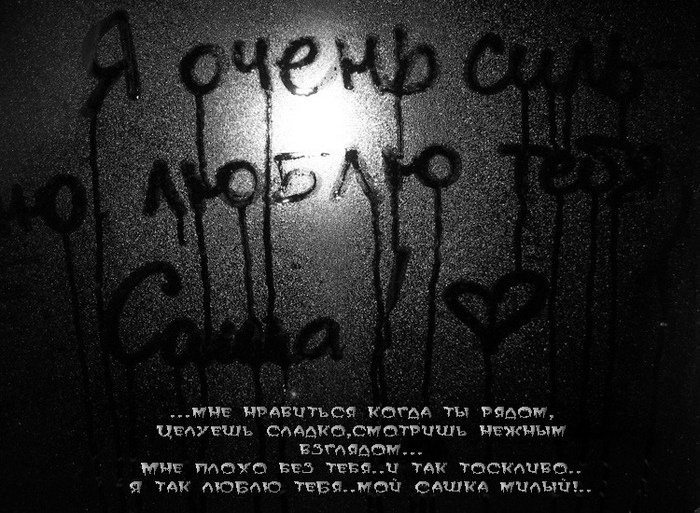 Я очень силь
но люблю тебя
Саша!
...мне нравиться когда ты рядом,
целуешь сладко,смотришь нежным
взглядом...
мне плохо без тебя..и так тоскливо..
я так люблю тебя..мой сашка милый!..